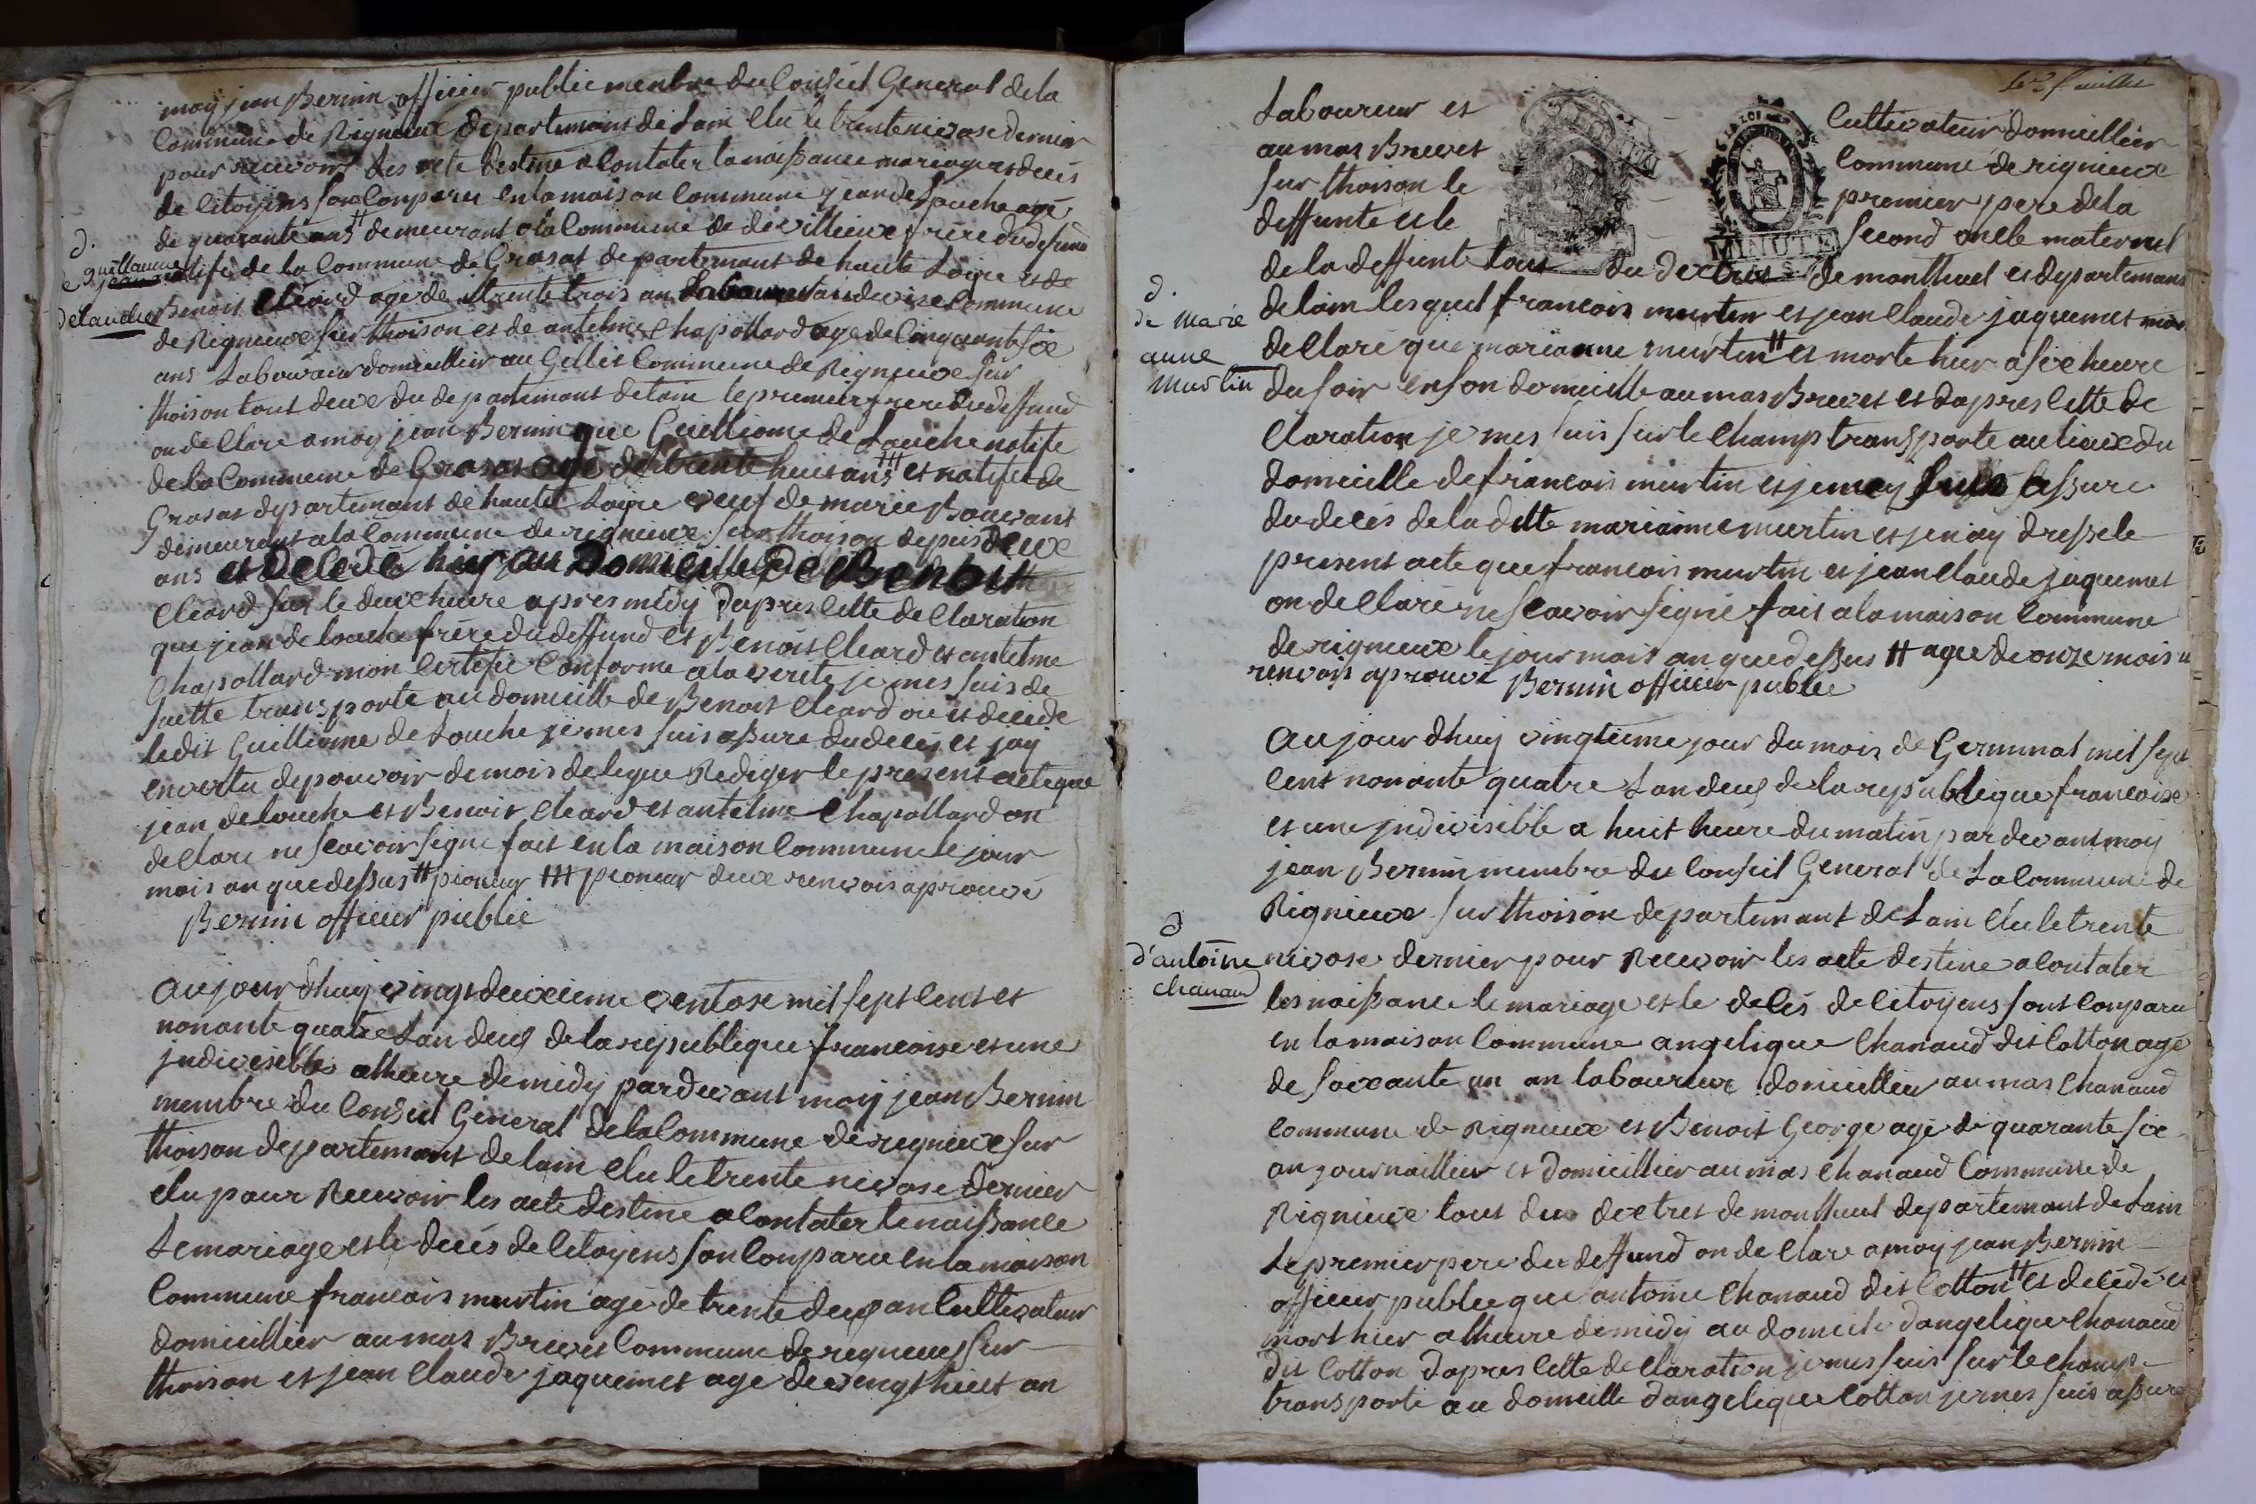 moy jean Bernin officier public menbre du Conseil General de la
Commune de Rignieux departemant de Lain élu le trente nivose dernier
pour recevoir des acte destine a Contater la naissance mariage et decés
de Citoyens son Comparu en la maison Commune jean de Louche agé
de quarante ans # demeurant a la Commune de de villieux frere du defund
d.
guillaume
delauche
natife de la Commune de Grasat departemant de haute Loire et de
Benoit Cleard age de trente trois an Commune
de Rignieux sur thoison et de antelme Chapollard age de Cinquante six
ans Laboureur domicillier au Gillet Commune de Rignieux sur
thoison tout deux du departemant de lain le premier frere du deffund
on de Clare a moy jean Bernin que Guilliome de Louche natife
de la Commune de Grasat age de trente huit ans ### et natife de
Grasat departemant de haute Loire veuf de marie Bouvant
demeurant a la Commune de rignieux sur thoison depuis deux
ans et decedé hier au Domicille De Benoit
Cleard sur le deux heure apres midy dapres Cette de Claration
que jean de louche frere du deffund et Benoit Cleard et antelme
Chapollard mon Certifié Conforme a la verite je mes suis de
suitte transporte au domicille de Benoit Cleard ou et decide
ledit Guilliome de Louche je mes suis assure du deces et jay
en vertu de pouvoir de mois delegue Rediger le present acte que
jean delouche et Benoit Cleard et antelme Chapollard on
de Clare ne scavoir signe fait en la maison Commune le jour
mois an que dessus # pioneur ### pioneur deux renvois aprouvé
Bernin officier public
aujourdhuy vingt deuxieme ventose mil sept cent et
nonante quatre Lan deus de la republique francoise et une
jndivisible a lheure de midy par devant moy jean Bernin
membre du Conseil General de la Commune de rignieux sur
thoison departemant de lain élu le trente nivose dernier
élu pour Recevoir les acte destine a Contater le naissance
Le mariage et le decés de Citoyens son Comparu en la maison
Commune francois murtin agé de trente deux an Cultivateur
domicillier au mas Brevet Commune de rignieux sur
thoison et jean Claude jaquemet age de vengt huit an
Le 3 feuillet
Laboureur et
au mas Brevet
sur thoison le
deffunte et le
LA LOI
MINUTE
Cultivateur domicillier
Commune de rignieux
premier pere de la
second oncle maternel
de la deffunte tous du dextrict de montluel et departemant
d.
de marie
anne
murtin
de lain lesquel francois murtin et jean Claude jaquemet mon
de Claré que marianne murtin # et morte hier a six heure
du soir en son domicille au mas Brevet et dapres Cette de
Claration je mes suis sur le Champ transporte au lieux du
domicille de francois murtin et je mey suis assure
du deces de la ditte marianne murtin et jen ay dresse le
present acte que francois murtin et jean Claude jaquemet
on de Claré ne scavoir signé fait a la maison Commune
de rignieux le jour mois an que dessus # agée de onze mois
renvois aprouvé Bernin officier public
aujourdhuy vingtieme jour du mois de Germinal mil sept
Cent nonante quatre Lan deus de la republique francoise
et une jndivisible a huit heure du matin par devant moy
jean Bernin membre du Conseil General de La Commune de
Rignieux sur thoison departemant de Lain élu le trente
d
d'antoine
chanaud
nivose dernier pour Recevoir les acte destine a Contater
les naissance le mariage et le decés de Citoyens sont Comparu
en la maison Commune angelique Chanaud dit Cotton agé
de soixante un an laboureur domicillier au mas Chanaud
Commune de Rignieux et Benoit George agé de quarante six
an journaillier et domicillier au mas Chanaud Commune de
Rignieux tous deu dextret de montluel departemant de Lain
Le premier pere du deffund on de Clare a moy jean Bernin
officier public que antoine Chanaud dit Cotton # et decédé et
mort hier a lheure de midy au domicile dangelique Chanaud
dit Cotton dapres Cette de Claration je mes suis sur le Champ
transporté au domicille dangelique Cotton je mes suis assure